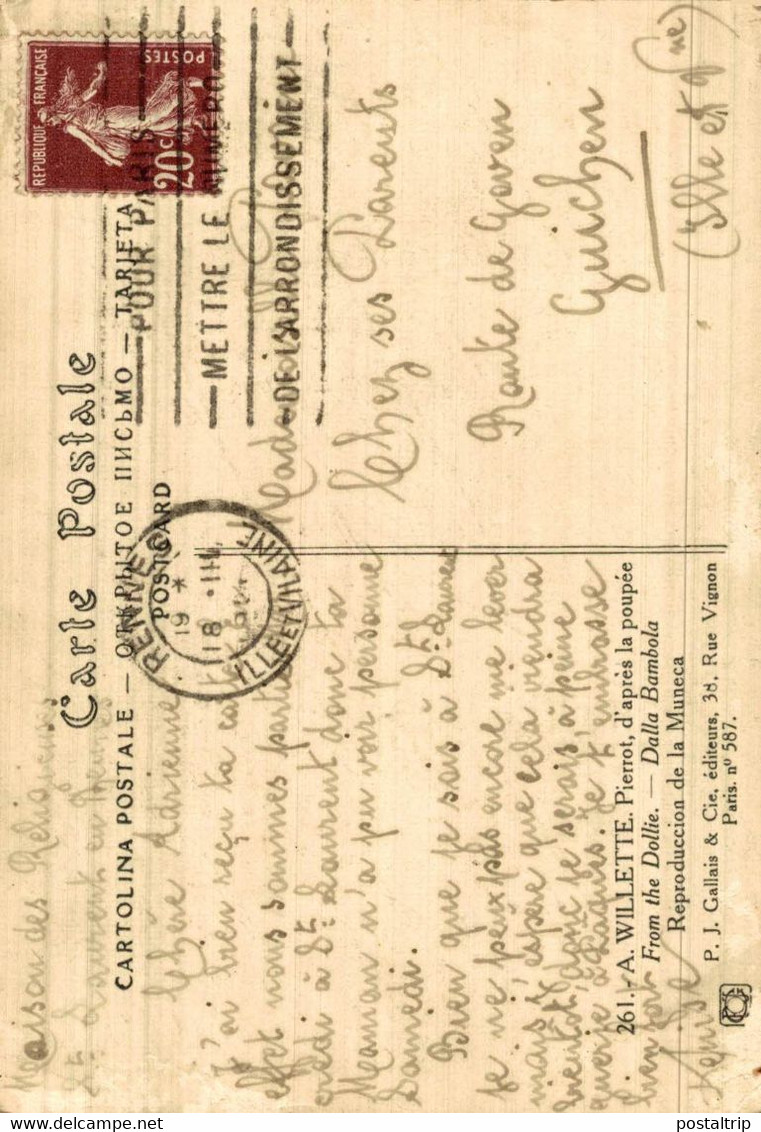 Carte Postale
CARTOLINA POSTALE — ОТКРЫТОЕ ПИСЬМО — TARJETA
POSTCARD
REPUBLIQUE FRANÇAISE
POSTES
20c
POUR PARIS
METTRE LE NUMERO
DE L'ARRONDISSEMENT
RENNES
19 *
18 · III
ILLE ET VILAINE
Maison des
St. Laurent en Rennes
Chère Adrienne
J'ai bien reçu ta carte
effet nous sommes
credi à St. Laurent donc ta
Maman n'a pu voir personne
Samedi.
Bien que je sois à St. Laurent
je ne peux pas encore me lever
mais j'espère que cela viendra
bientôt, donc je serais à peine
guerie à Pâques. Je t'embrasse
bien fort
Denise
Chez ses Parents
Route de Goven
Guichen
(Ille et Vne)
261. - A. WILLETTE. Pierrot, d'après la poupée
From the Dollie. — Dalla Bambola
Reproduccion de la Muneca
P. J. Gallais & Cie, éditeurs, 38, Rue Vignon
Paris. nº 587.
postaltrip